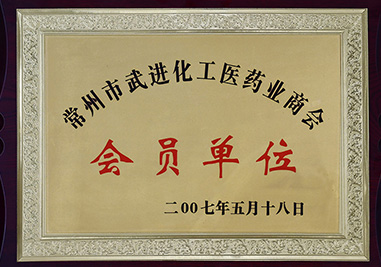 常州市武进化工医药业商会
会员单位
二00七年五月十八日